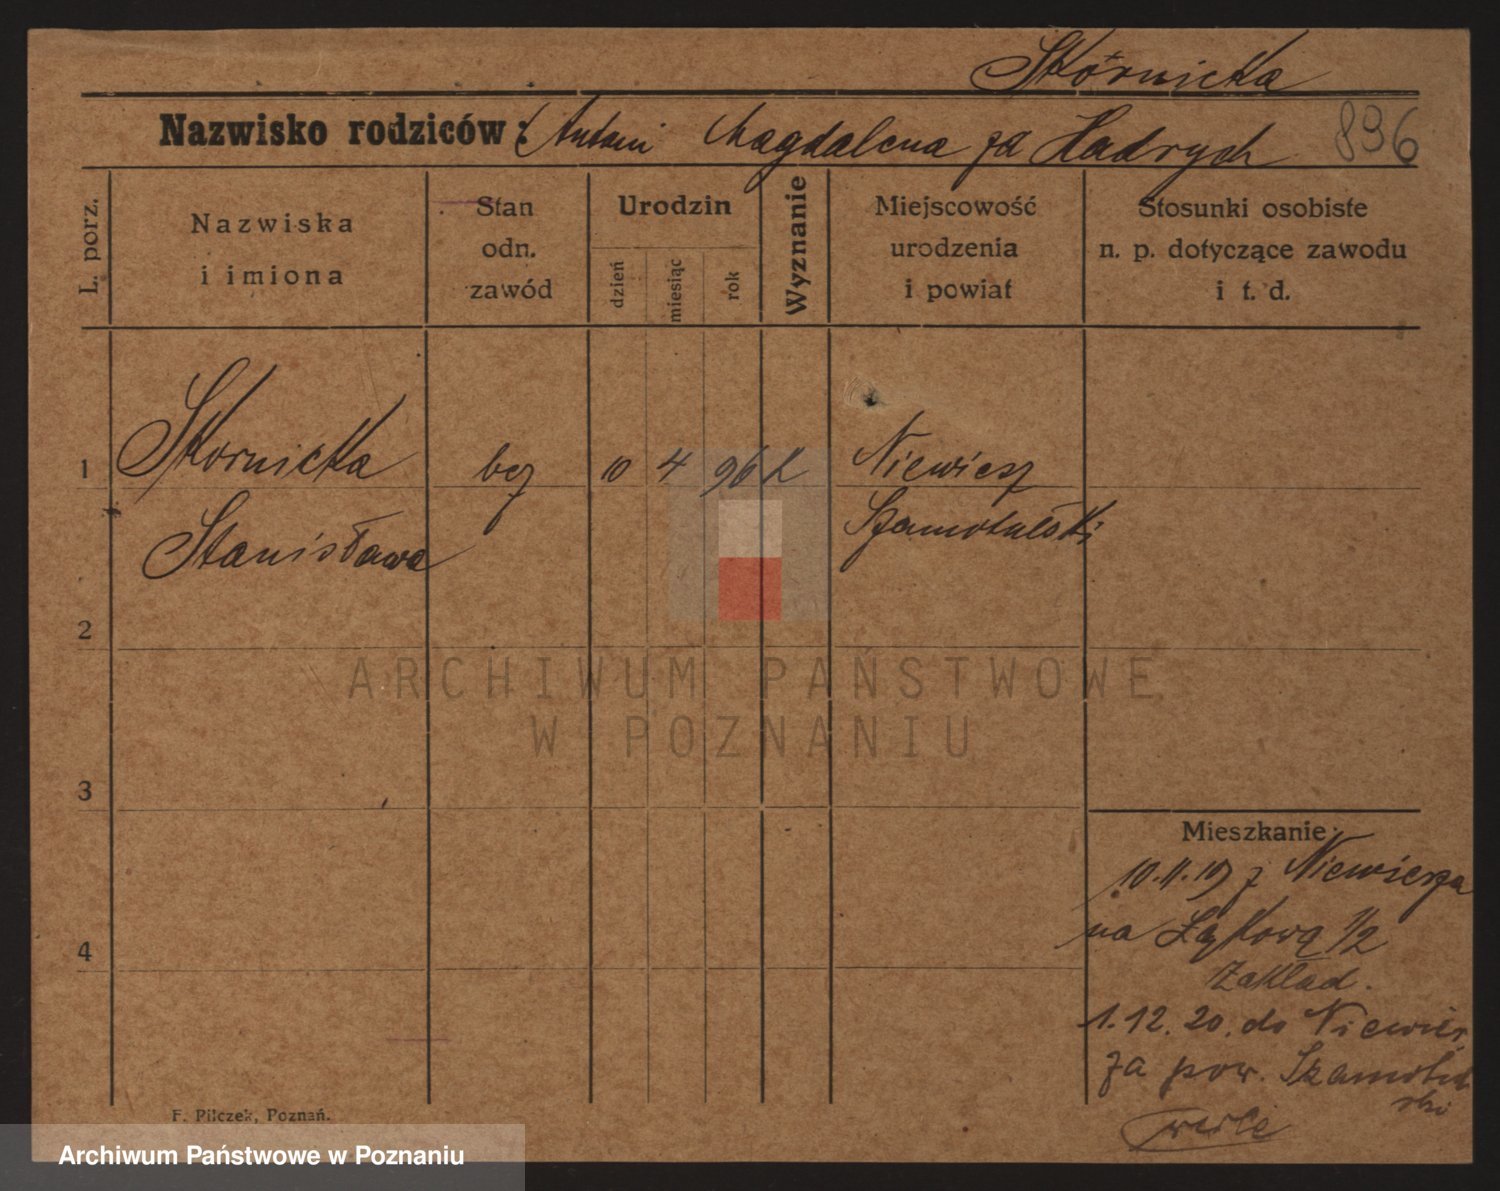 Skórnicka
Nazwisko rodziców: Antoni Magdalena za Hadrych 896
L. porz.
Nazwiska
i imiona
Stan
odn.
zawód
Urodzin
dzień
miesiąc
rok
Wyznanie
Miejscowość
urodzenia
i powiat
Stosunki osobiste
n. p. dotyczące zawodu
i t. d.
1 Skornicka bez 10 4 96 k Niewiesz
Stanisława Szamotulski
2
ARCHIWUM PAŃSTWOWE
W POZNANIU
3
Mieszkanie:
10.11.19 z Niewiesza
na Łąkową 1/2
4
Zakład.
1.12.20. do Niewies
za pow. Szamotul
ski
F. Pilczek, Poznań.
Archiwum Państwowe w Poznaniu